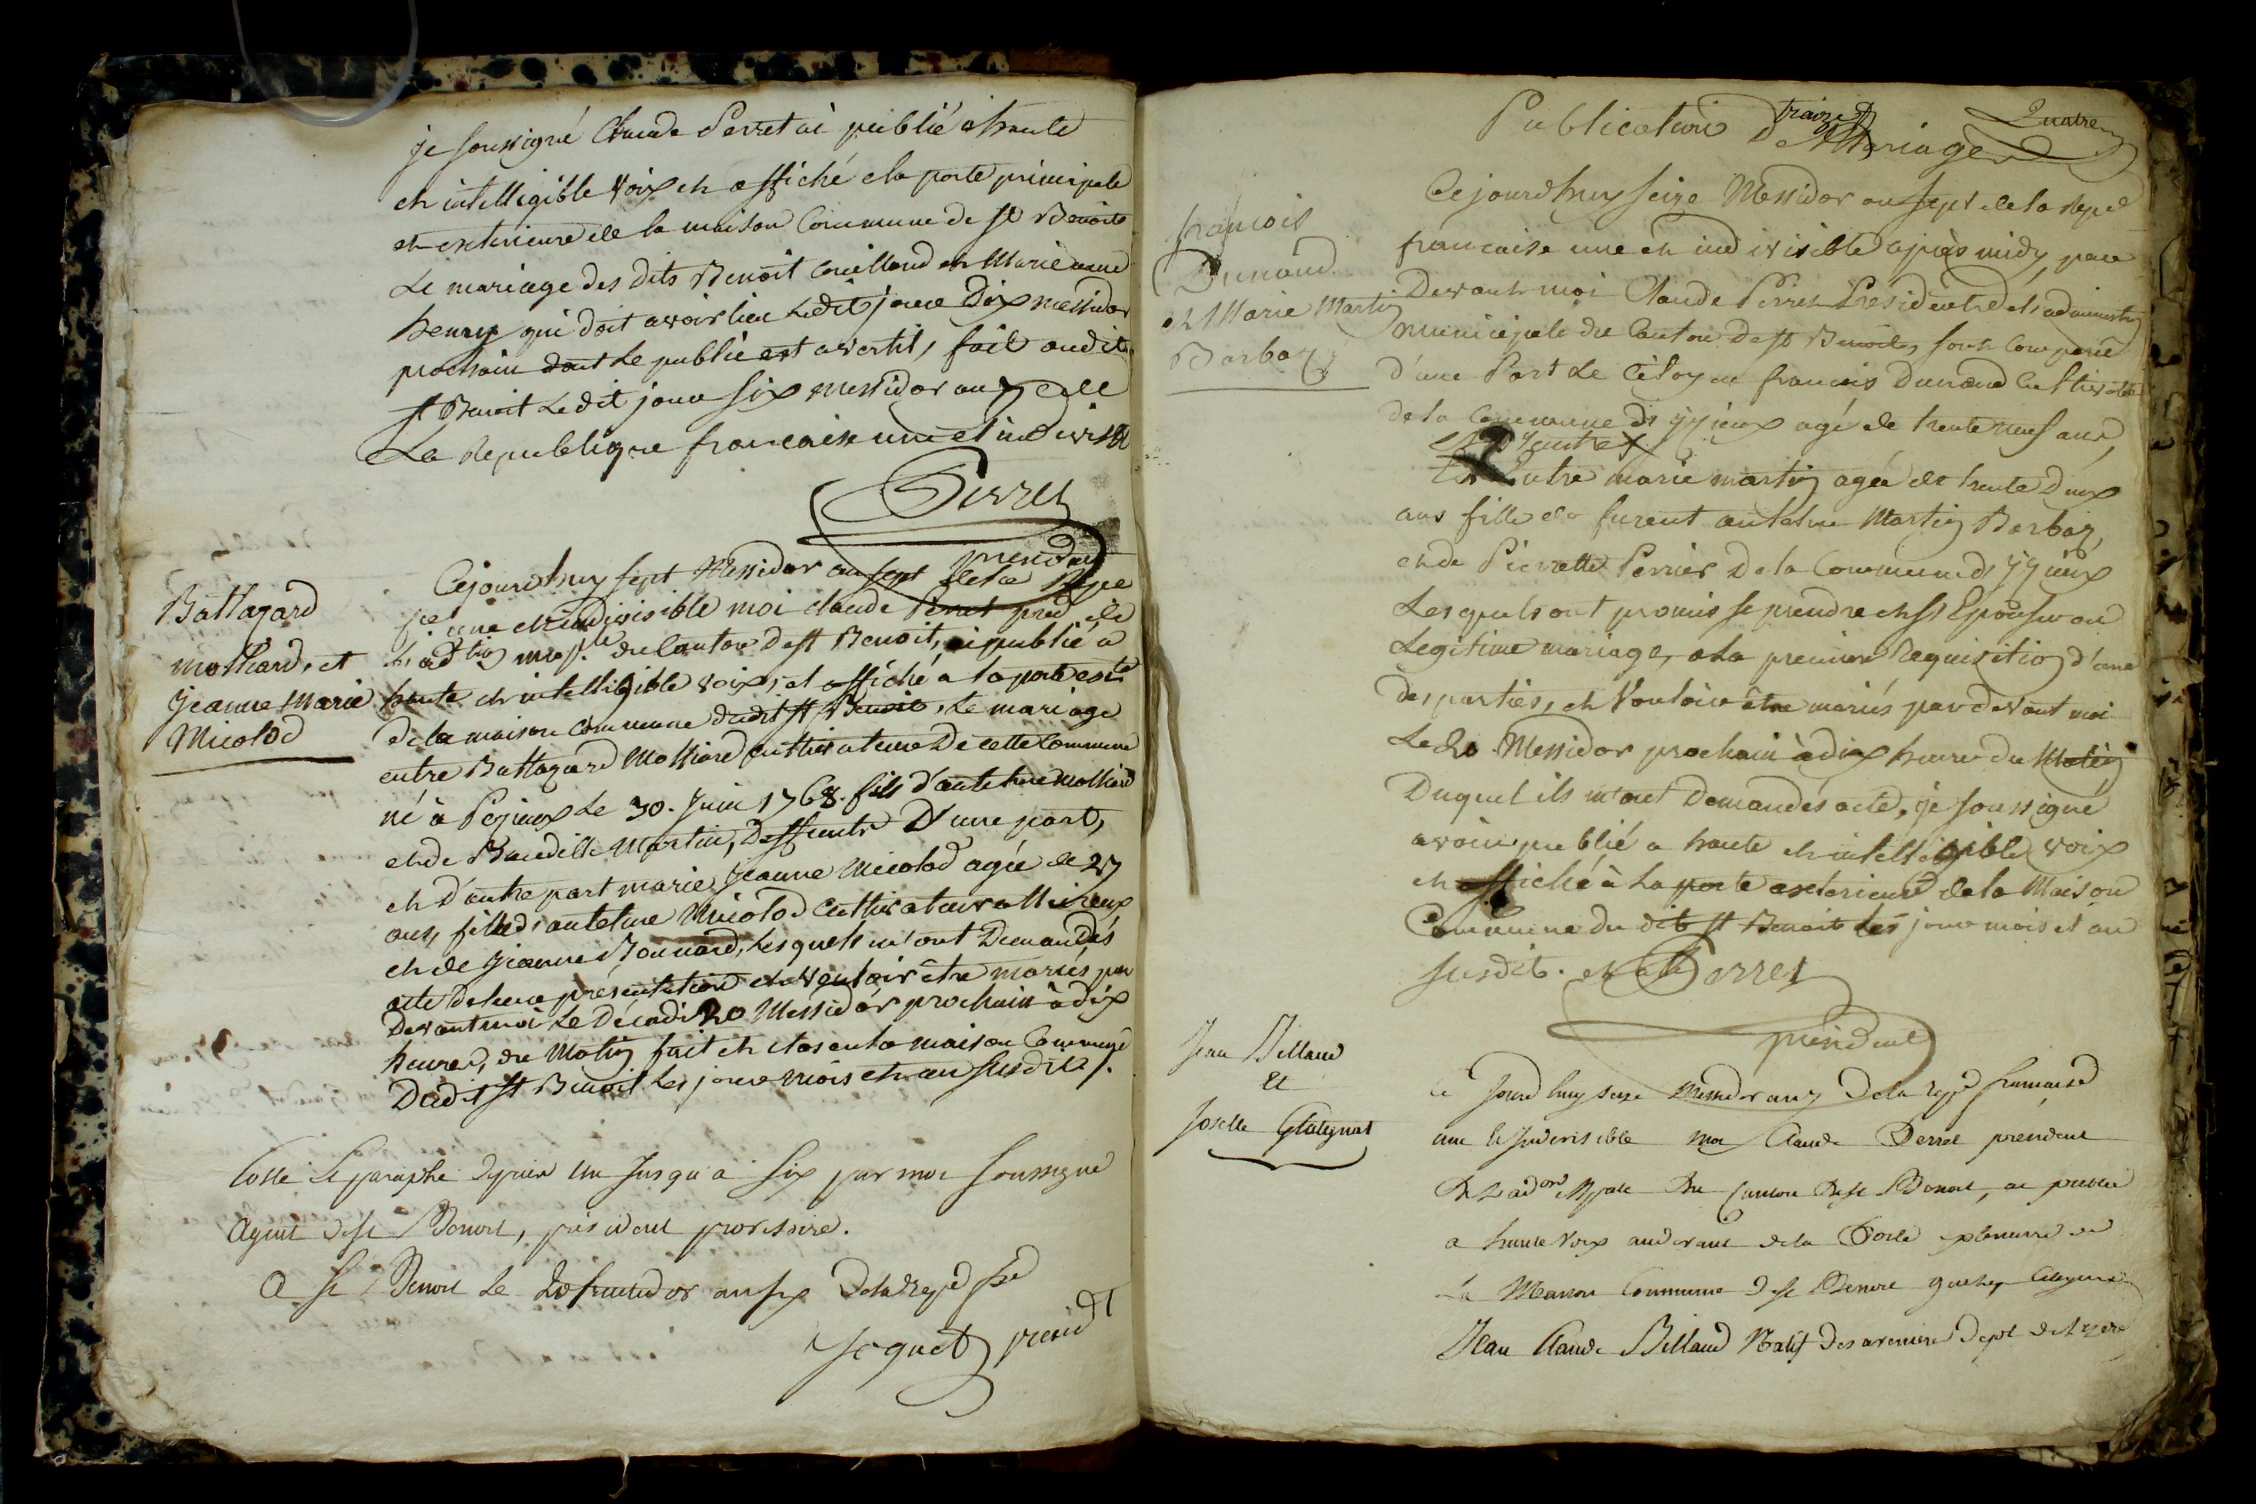 je soussigné Claude Perret ai publié a haute
et intelligible voix et affiché a la porte principale
et exterieure de la maison Commune de st Benoit
Le mariage des dits Benoit Couilloud et Marie anne
henry qui doit avoir lieu Ledit jour Dix messidor
prochain dont Le public est avertit, fait audit
st Benoit Le dit jour six messidor an 7 de
La Republique francaise une et indivisible
Perret
president
Battazard
molliard, et
Jeanne Marie
Micolod
Cejourdhuy sept Messidor an sept de la Repe
fse une et indivisible moi claude Perret pred de
L'adtion mople du Canton de st Benoit, ai publié a
haute et intelligible voix, et affiché a la porte extre
de la maison commune dudit st Benoit, Le mariage
entre Battazard Molliard cultivateur De cette Commune
né à Pezieux Le 30. Juin 1768. fils d'antelme molliard
et de Baudille Martin, Deffunte D'une part,
et D'autre part marie Jeanne Micolod agée de 27
ans, fille d'antelme Micolod cultivateur
et de Jeanne Bonnard, Lesquels m'ont Demandés
acte de leur présentation et vouloir être mariés par
Devant moi Le Décadi 20 Messidor prochain à dix
heures, du Matin fait et clos en la maison Commune
Dudit st Benoit Les jour mois et an susdits.
Cotté et paraphé depuis un Jusqu'a six par moi soussigné
agent de st Benoit, president provisoire.
a st Benoit Le 20 fructidor an six de la Repe fse
Joquet presidt
Publications
traine
De Mariages
Quatre
francois
Dunand
et Marie Martin
Barbaz
Cejourd'huy seize Messidor an sept de la repe
francaise une et indivisible après midy, par
Devant moi Claude Perret Président de l'administron
municipale du Canton de st Benoit, sont Comparu
d'une Part Le Citoyen francois Dunand Cultivateur
de la Commune d'yzieux agé de trente neuf ans,
et d'autre
Et D'autre marie martin agée de trente Deux
ans fille de furent antelme Martin Barbaz,
et de Pierrette Perrier De la Commune d'yzieux
Lesquels ont promis se prendre et s'Epouser en
Legitime mariage, a La premiere Requisition d'une
des parties, et vouloir être mariés par devant moi
Le 20 Messidor prochain à dix heures du Matin
Duquel ils m'ont Demandés acte, je soussigné
avoir publié a haute et intelligible voix
et affiché à La porte exterieure de la Maison
Commune du dit st Benoit Les jour mois et an
susdits.
Perret
president
Jean Billaud
et
Josette Glategnat
Ce Jourdhuy seize Messidor an 7 De la repe francaise
une et Indivisible moi Claude Perret president
De L'adon Mpale Du Canton de st Benoit, ai publié
a haute voix audevant de la Porte exterieure de
La Maison Commune De st Benoit que les Citoyens
Jean Claude Billaud Natif des avenieres Dept de L'izere